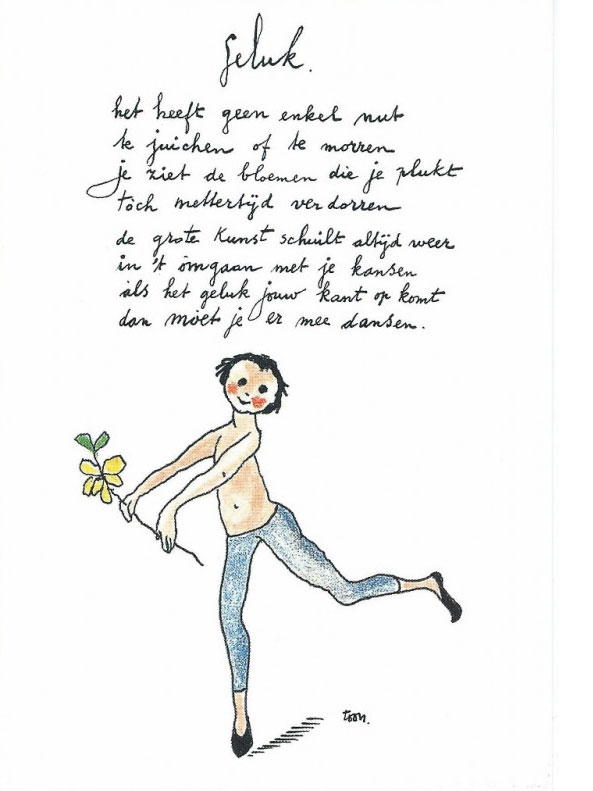 geluk.
het heeft geen enkel nut
te juichen of te morren
je ziet de bloemen die je plukt
tòch mettertijd verdorren
de grote kunst schuilt altijd weer
in 't omgaan met je kansen
als het geluk jouw kant op komt
dan moet je er mee dansen.
toon.